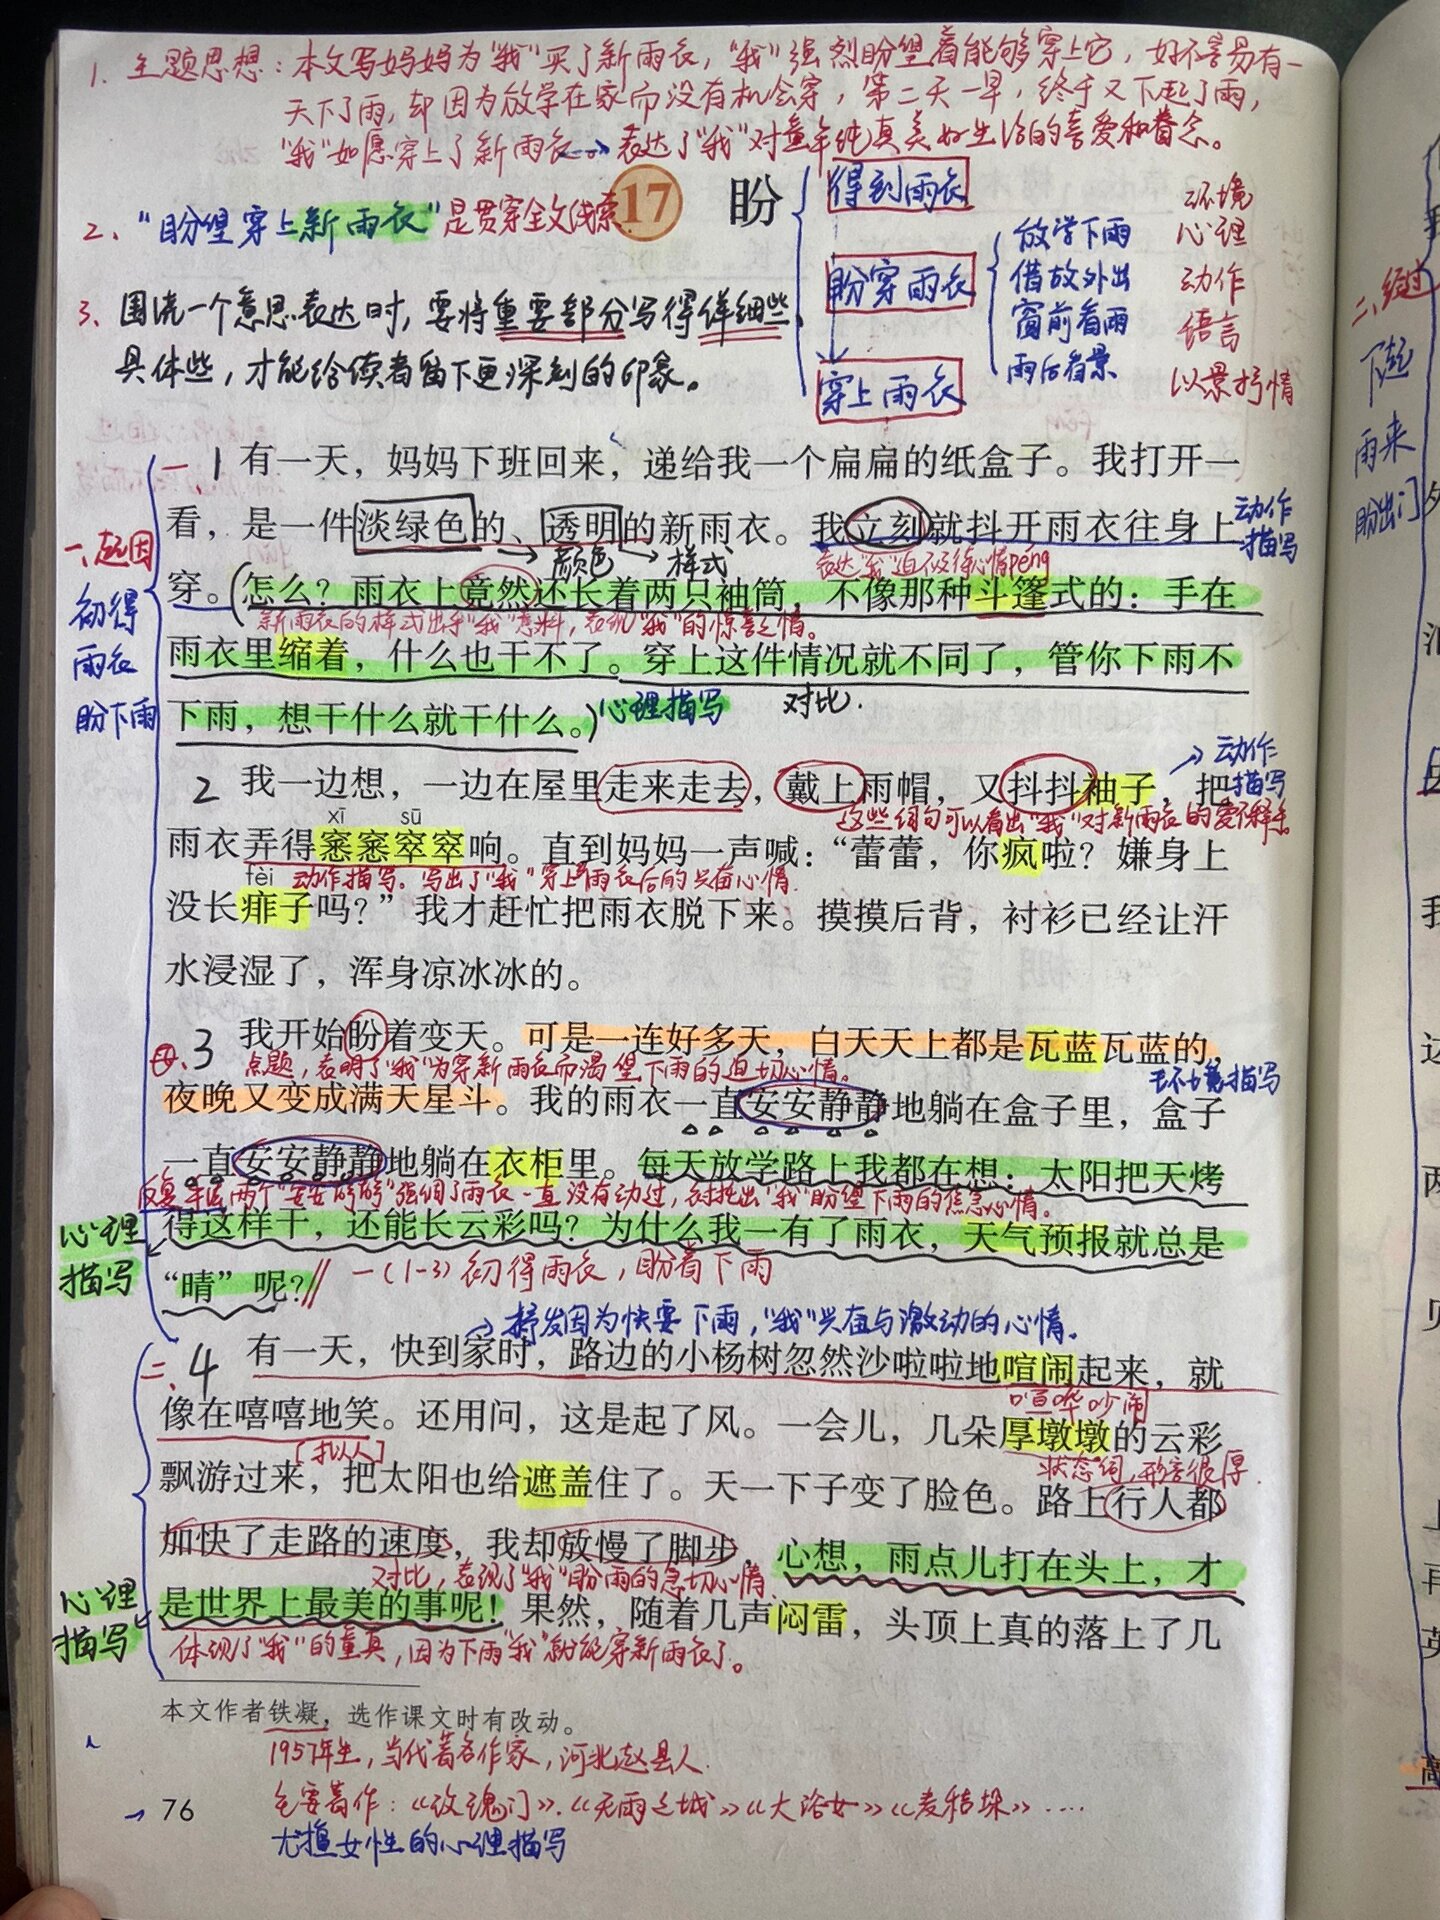 1. 主题思想：本文写妈妈为“我”买了新雨衣，“我”强烈盼望着能够穿上它，好不容易有一
天下了雨，却因为放学在家而没有机会穿，第二天一早，终于又下起了雨，
“我”如愿穿上了新雨衣→表达了“我”对童年纯真美好生活的喜爱和眷念。
2、“盼望穿上新雨衣”是贯穿全文线索
17 盼
得到雨衣
盼穿雨衣
穿上雨衣
放学下雨
借故外出
窗前看雨
雨后看景
环境
心理
动作
语言
以景抒情
3、围绕一个意思表达时，要将重要部分写得详细些
具体些，才能给读者留下更深刻的印象。
一、起因
初得
雨衣
盼下雨
一 1 有一天，妈妈下班回来，递给我一个扁扁的纸盒子。我打开一
看，是一件淡绿色的、透明的新雨衣。我立刻就抖开雨衣往身上
动作
描写
颜色 样式
表达“我”迫不及待心情 péng
穿。（怎么？雨衣上竟然还长着两只袖筒，不像那种斗篷式的：手在
新雨衣的样式出乎“我”意料，表现“我”的惊喜之情。
雨衣里缩着，什么也干不了。穿上这件情况就不同了，管你下雨不
下雨，想干什么就干什么。）心理描写 对比.
2 我一边想，一边在屋里走来走去，戴上雨帽，又抖抖袖子，把
→动作
描写
这些词句可以看出“我”对新雨衣的爱不释手
xī sū
雨衣弄得窸窸窣窣响。直到妈妈一声喊：“蕾蕾，你疯啦？嫌身上
fèi 动作描写。写出了“我”穿上雨衣后的兴奋心情.
没长痱子吗？”我才赶忙把雨衣脱下来。摸摸后背，衬衫已经让汗
水浸湿了，浑身凉冰冰的。
3 我开始盼着变天。可是一连好多天，白天天上都是瓦蓝瓦蓝的，
点题，表明了“我”为穿新雨衣而渴望下雨的迫切心情。
环境描写
夜晚又变成满天星斗。我的雨衣一直安安静静地躺在盒子里，盒子
一直安安静静地躺在衣柜里。每天放学路上我都在想：太阳把天烤
反复手法 两个“安安静静”强调了雨衣一直没有动过，衬托出“我”盼望下雨的焦急心情。
心理
描写
得这样干，还能长云彩吗？为什么我一有了雨衣，天气预报就总是
“晴”呢？// 一（1-3）初得雨衣，盼着下雨
→抒发因为快要下雨，“我”兴奋与激动的心情.
二、4 有一天，快到家时，路边的小杨树忽然沙啦啦地喧闹起来，就
喧哗吵闹
像在嘻嘻地笑。还用问，这是起了风。一会儿，几朵厚墩墩的云彩
[拟人]
状态词，形容很厚.
飘游过来，把太阳也给遮盖住了。天一下子变了脸色。路上行人都
加快了走路的速度，我却放慢了脚步，心想，雨点儿打在头上，才
对比，表现了“我”盼雨的急切心情.
心理
描写
是世界上最美的事呢！果然，随着几声闷雷，头顶上真的落上了几
体现了“我”的童真，因为下雨“我”就能穿新雨衣了。
本文作者铁凝，选作课文时有改动。
1957年生，当代著名作家，河北赵县人.
主要著作：《玫瑰门》.《无雨之城》《大浴女》《麦秸垛》····
尤擅女性的心理描写
76
二、经过
下起
雨来
盼出门